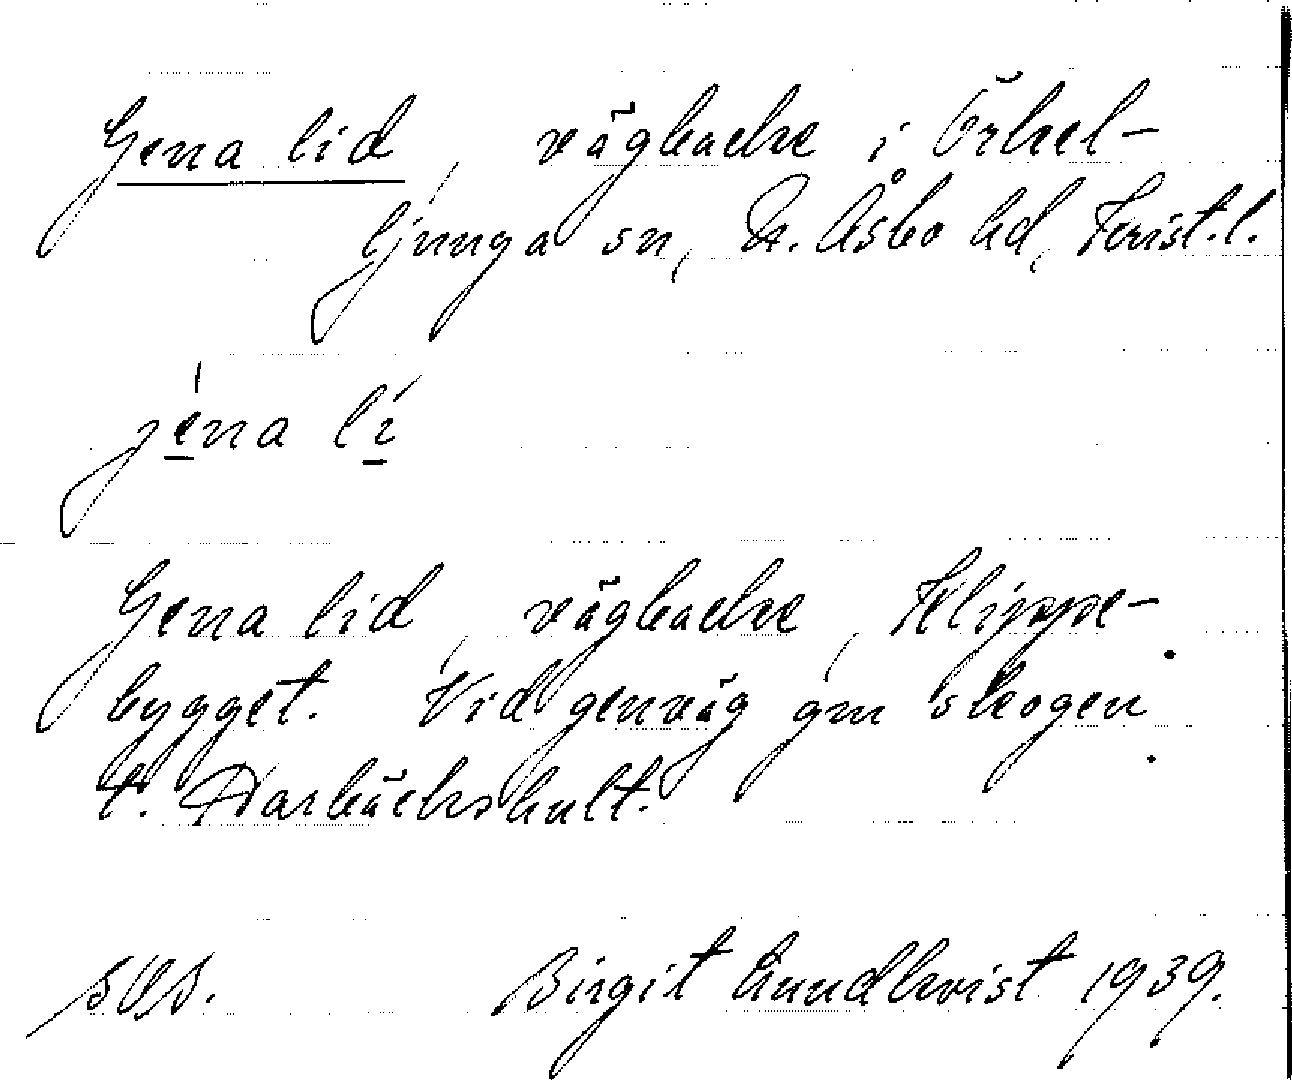 Gena lid, vägbacke i Örkel-
ljunga sn, N. Åsbo hd, Krist.l.
jena li
Gena lid, vägbacke, Klippe-
bygget. Vid genväg gm skogen
t. Darbäckshult.
Birgit Lundkvist 1939.